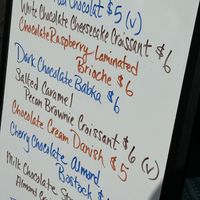 Chocolat $5 (v)
White Chocolate Cheesecake Croissant $6
Chocolate Raspberry Laminated
Brioche $6
Dark Chocolate Babka $6
Salted Caramel
Pecan Brownie Croissant $6 (v)
Chocolate Cream Danish $5
Cherry Chocolate Almond
Bostock $6
Milk Chocolate
Almond